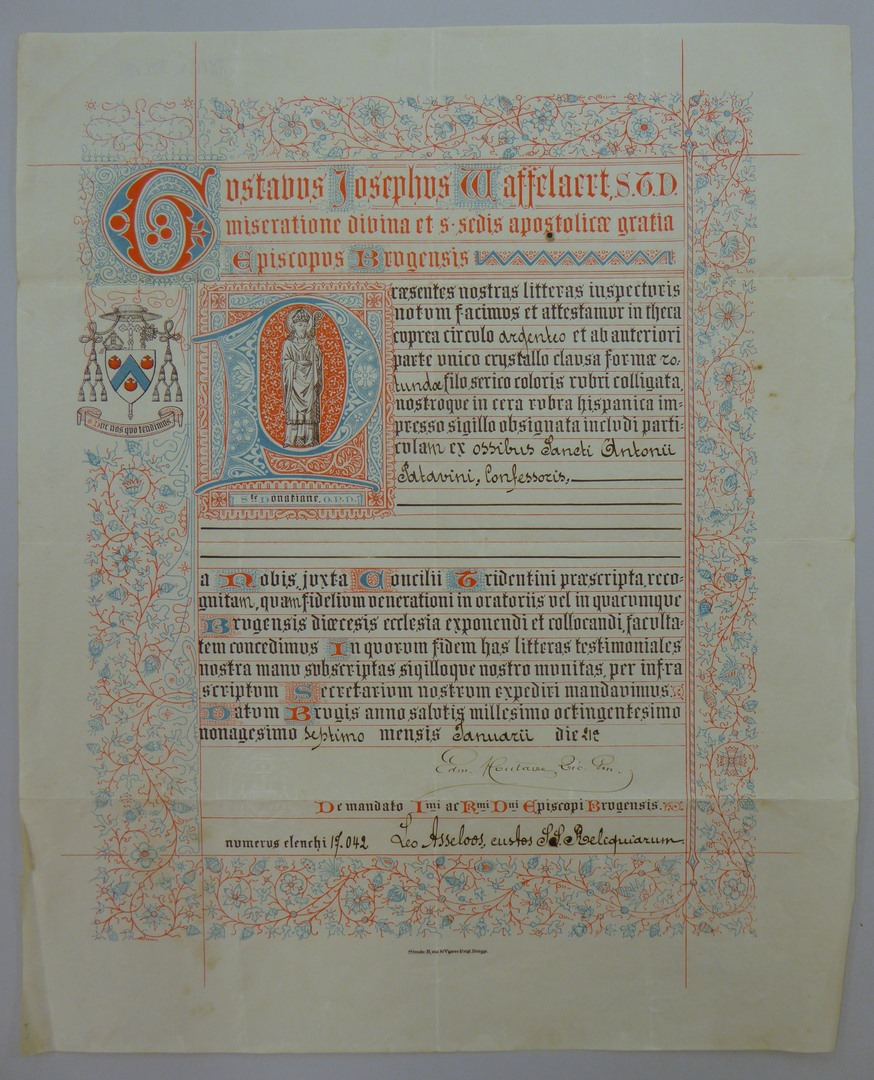 Gustavus Josephus Waffelaert, S.T.D.
miseratione divina et s. sedis apostolicæ gratia
Episcopus Brugensis
Præsentes nostras litteras inspecturis
notum facimus et attestamur in theca
cuprea circulo argenteo et ab anteriori
parte unico crystallo clausa formæ ro-
tundæ filo serico coloris rubri colligata,
nostroque in cera rubra hispanica im-
presso sigillo obsignata includi parti-
culam ex ossibus Sancti Antonii
Patavini, Confessoris,
Ste Donatiane. O.P.D.
a Nobis, juxta Concilii Tridentini præscripta, reco-
gnitam, quam fidelium venerationi in oratoriis vel in quacumque
Brugensis diœcesis ecclesia exponendi et collocandi, faculta-
tem concedimus In quorum fidem has litteras testimoniales
nostra manu subscriptas sigilloque nostro munitas, per infra
scriptum Secretarium nostrum expediri mandavimus.
Datum Brugis anno salutis millesimo octingentesimo
nonagesimo septimo mensis Januarii die
De mandato Imi ac Rmi Dni Episcopi Brugensis.
numerus elenchi 17.042 Leo Asseloos, custos SS. Relequiarum.